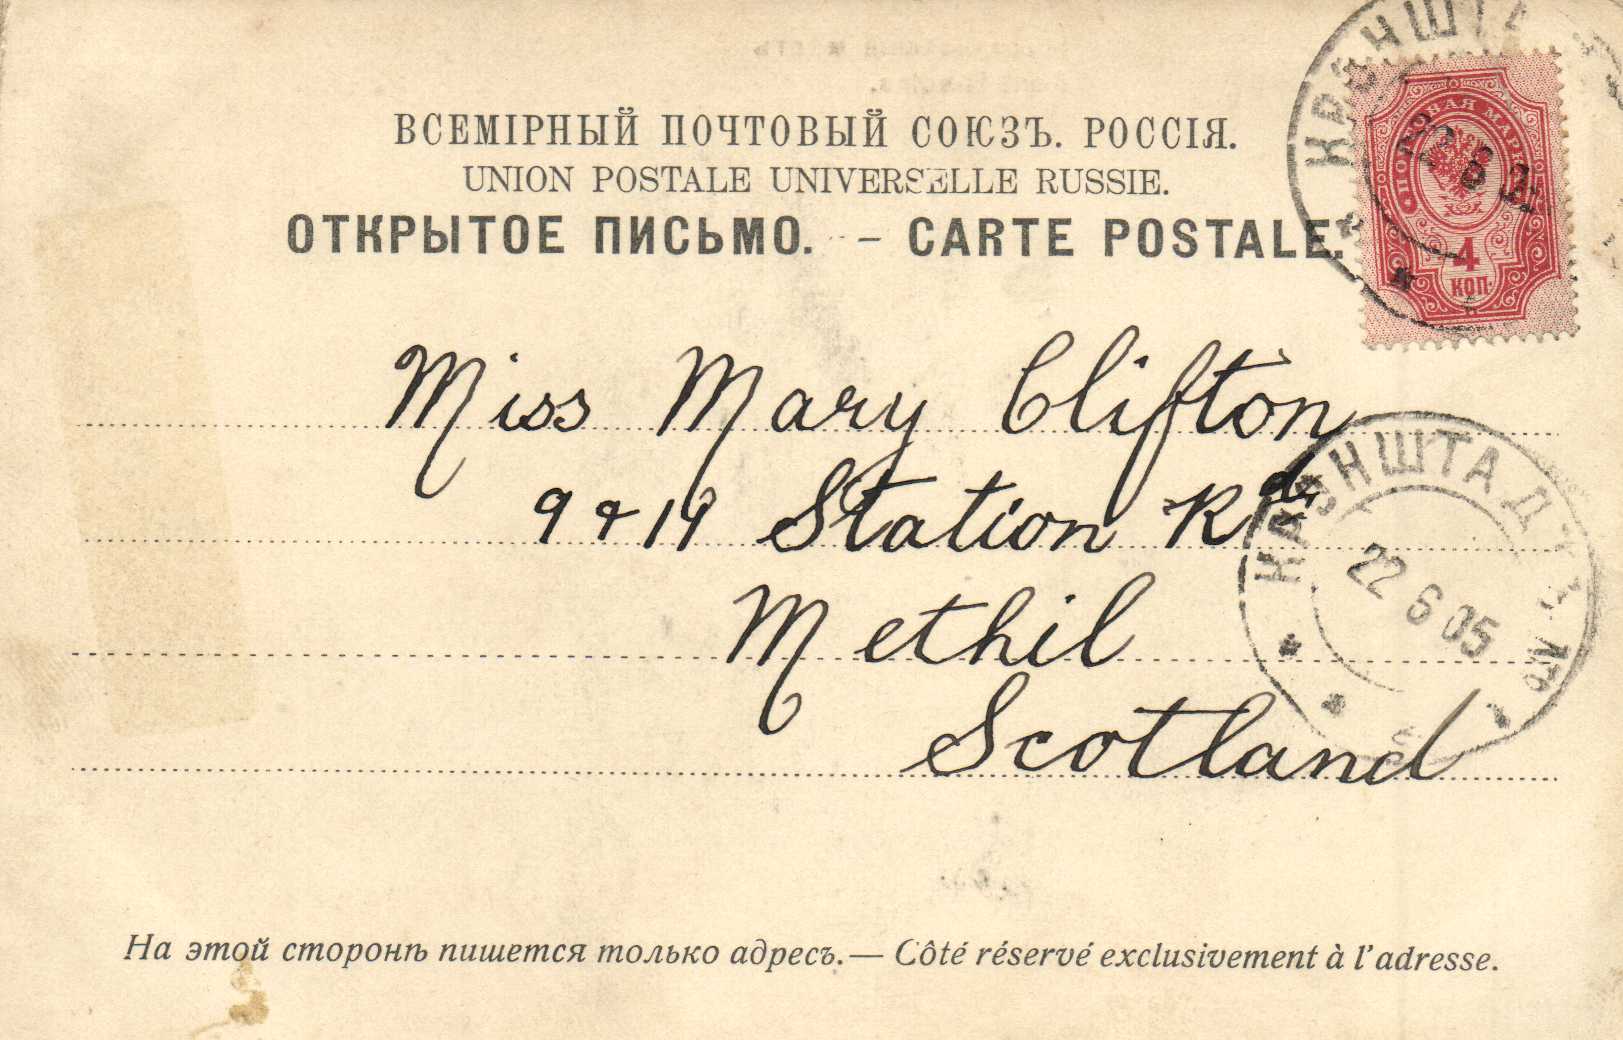 ВСЕМІРНЫЙ ПОЧТОВЫЙ СОЮЗЪ. РОССІЯ.
UNION POSTALE UNIVERSELLE RUSSIE.
ОТКРЫТОЕ ПИСЬМО. - CARTE POSTALE.
ПОЧТОВАЯ МАРКА
4
КОП.
Miss Mary Clifton
9 & 14 Station Rd
Methil
Scotland
КРОНШТАДТ
22 6 05
На этой сторонѣ пишется только адресъ.— Côté réservé exclusivement à l'adresse.